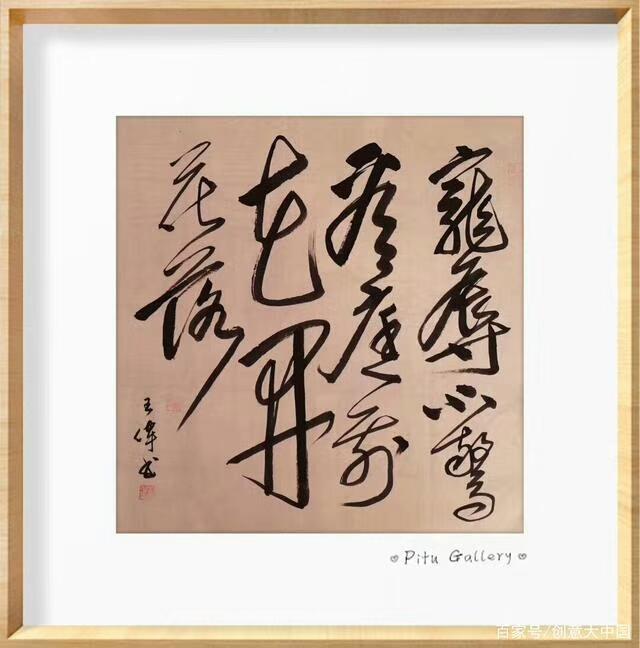 寵辱不驚
看庭前
花開
花落
王偉書
Pitu Gallery
百家号/创意大中国